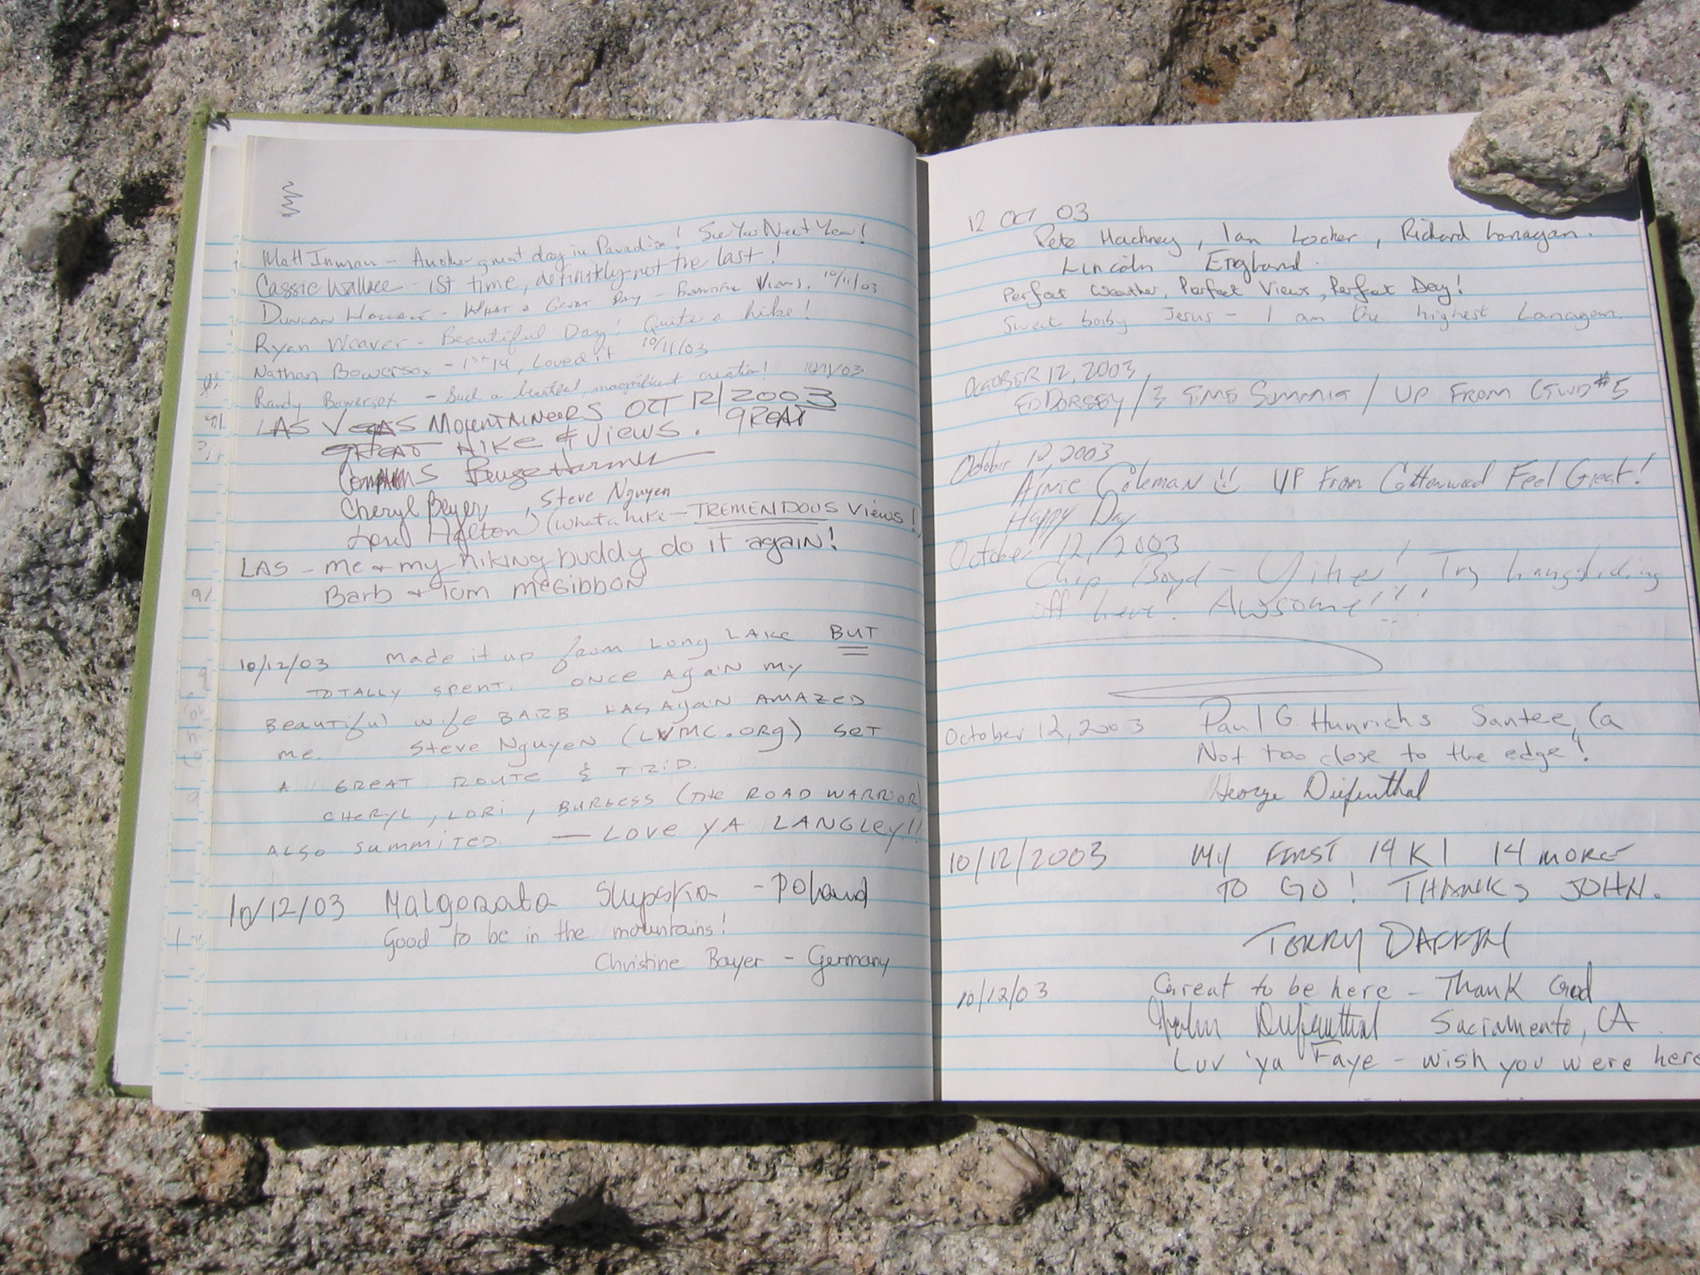 Matt Inman - Another great day in Paradise! See You Next Year!
Cassie Wallace - 1st time, definitely not the last!
Duncan - What a Great Day - Views, 10/11/03
Ryan Weaver - Beautiful Day! Quite a hike!
Nathan Bowersox - 1st 14, Loved it 10/11/03
Randy Bowersox - Such a magnificent creation! 10/11/03
LAS VEGAS MOUNTAINEERS OCT 12/2003
GREAT HIKE & VIEWS. GREAT
Cheryl Beyer, Steve Nguyen
(what a hike - TREMENDOUS views!
LAS - me & my hiking buddy do it again!
Barb & Tom McGibbon
10/12/03 Made it up from Long Lake BUT
TOTALLY SPENT. ONCE AGAIN MY
BEAUTIFUL WIFE BARB LAS AGAIN AMAZED
ME. STEVE NGUYEN (LVMC.ORG) SET
A GREAT ROUTE & TRIP.
CHERYL, LORI, BURGESS (THE ROAD WARRIOR)
ALSO SUMMITED - LOVE YA LANGLEY!!
10/12/03 Malgorzata Slupska - Poland
Good to be in the mountains!
Christine Bayer - Germany
12 Oct 03
Pete Hackney, Ian Locker, Richard Lanagan.
Lincoln England.
Perfect Weather, Perfect Views, Perfect Day!
Sweet baby Jesus - I am the highest Lanagan.
OCTOBER 12, 2003
ED DORSEY / 3 TIME SUMMIT / UP FROM #5
October 12 2003
Arnie Coleman UP From Cottonwood Feel Great!
Happy Day
October 12, /2003
Chip Boyd - Yikes! Try hangliding
off here! Awsome!!!
October 12, 2003 Paul G. Hunrichs Santee, Ca
Not too close to the edge!
George Diefenthal
10/12/2003 MY FIRST 14K! 14 MORE
TO GO! THANKS JOHN.
TERRY
10/12/03 Great to be here - Thank God
John Diefenthal Sacramento, CA
Luv 'ya Faye - wish you were here